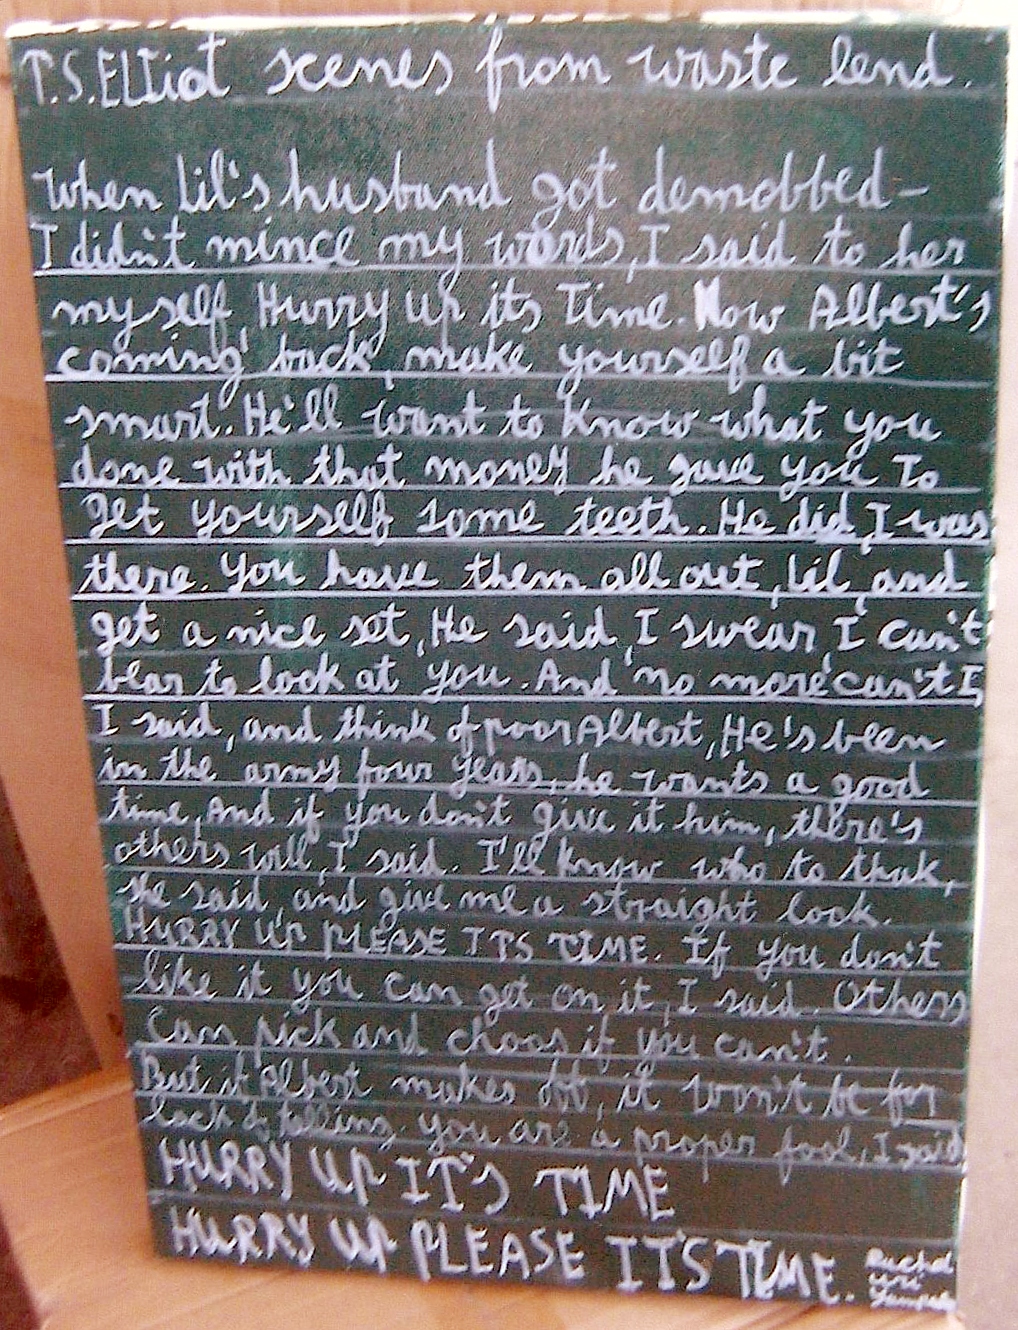 T.S.ELIiot scenes from waste lend.
When Lil's husband got demobbed-
I didn't mince my words, I said to her
my self, Hurry up its Time. Now Albert's
coming back, make yourself a bit
smart. He'll want to know what you
done with that money he gave you To
get yourself some teeth. He did, I was
there. You have them all out, Lil, and
get a nice set, He said, I swear I can't
bear to look at you. And no more can't I,
I said, and think of poor Albert, He's been
in the army four years, he wants a good
time, And if you don't give it him, there's
others will, I said. I'll know who to thak,
she said and give me a straight look.
HURRY UP PLEASE ITS TIME. If you don't
like it you can get on it, I said. Others
Can pick and choos if you can't.
But if Albert makes off, it won't be for
lack of telling. you are a proper fool, I said
HURRY UP IT'S TIME
HURRY UP PLEASE IT'S TIME.
Ruchel